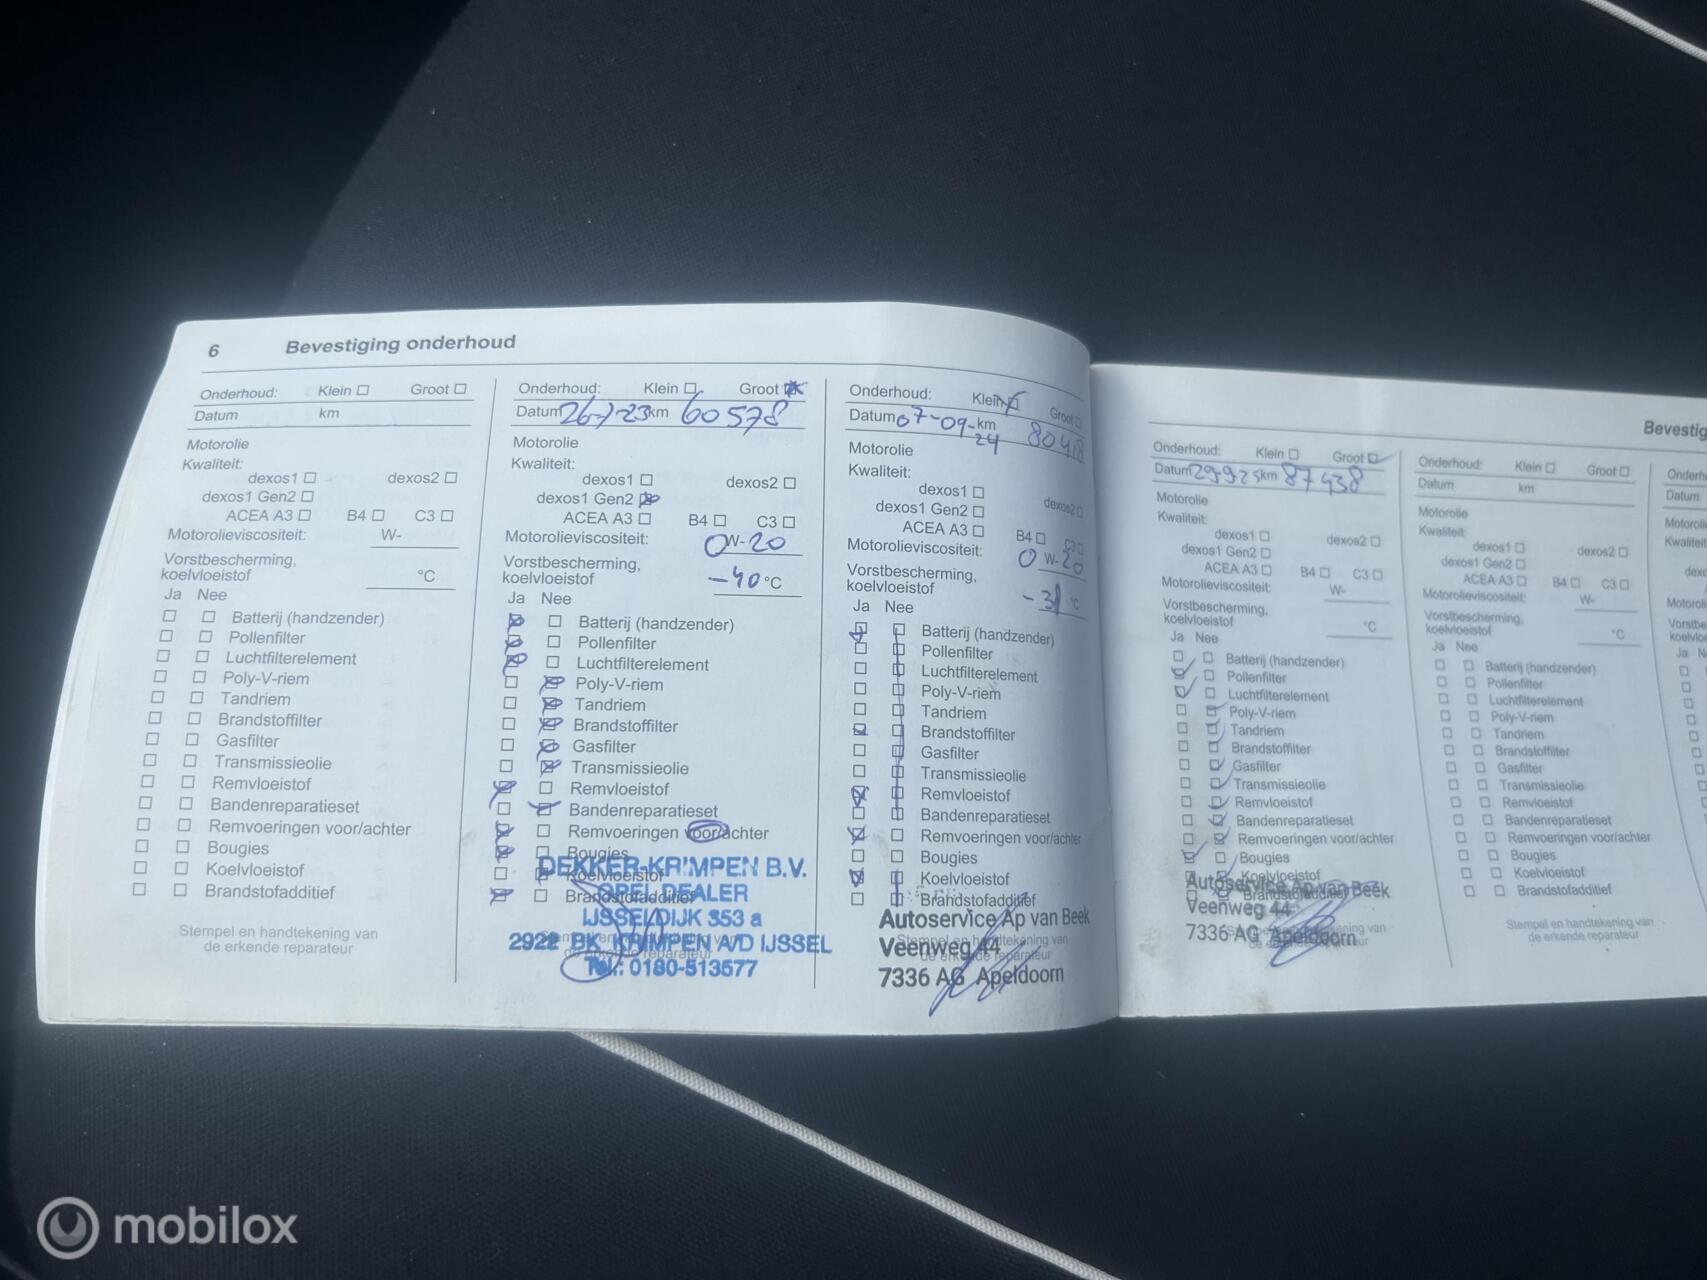 6 Bevestiging onderhoud
Onderhoud: Klein Groot
Datum km
Motorolie
Kwaliteit:
dexos1 dexos2
dexos1 Gen2
ACEA A3 B4 C3
Motorolieviscositeit: W-
Vorstbescherming,
koelvloeistof °C
Ja Nee
Batterij (handzender)
Pollenfilter
Luchtfilterelement
Poly-V-riem
Tandriem
Brandstoffilter
Gasfilter
Transmissieolie
Remvloeistof
Bandenreparatieset
Remvoeringen voor/achter
Bougies
Koelvloeistof
Brandstofadditief
Stempel en handtekening van
de erkende reparateur
Onderhoud: Klein Groot
Datum 26-7-23 km 60578
Motorolie
Kwaliteit:
dexos1 dexos2
dexos1 Gen2
ACEA A3 B4 C3
Motorolieviscositeit: 0W-20
Vorstbescherming,
koelvloeistof -40 °C
Ja Nee
Batterij (handzender)
Pollenfilter
Luchtfilterelement
Poly-V-riem
Tandriem
Brandstoffilter
Gasfilter
Transmissieolie
Remvloeistof
Bandenreparatieset
Remvoeringen voor/achter
Bougies
Koelvloeistof
Brandstofadditief
DEKKER-KRIMPEN B.V.
OPEL DEALER
IJSSELDIJK 353 a
2922 BK KRIMPEN A/D IJSSEL
Tel.: 0180-513577
Onderhoud: Klein Groot
Datum 07-09-24 km 80418
Motorolie
Kwaliteit:
dexos1 dexos2
dexos1 Gen2
ACEA A3 B4 C3
Motorolieviscositeit: 0 W-20
Vorstbescherming,
koelvloeistof -31 °C
Ja Nee
Batterij (handzender)
Pollenfilter
Luchtfilterelement
Poly-V-riem
Tandriem
Brandstoffilter
Gasfilter
Transmissieolie
Remvloeistof
Bandenreparatieset
Remvoeringen voor/achter
Bougies
Koelvloeistof
Brandstofadditief
Stempel en handtekening van
de erkende reparateur
Autoservice Ap van Beek
Veenweg 44
7336 AG Apeldoorn
Bevestig
Onderhoud: Klein Groot
Datum 29-9-25 km 87438
Motorolie
Kwaliteit:
dexos1 dexos2
dexos1 Gen2
ACEA A3 B4 C3
Motorolieviscositeit: W-
Vorstbescherming,
koelvloeistof °C
Ja Nee
Batterij (handzender)
Pollenfilter
Luchtfilterelement
Poly-V-riem
Tandriem
Brandstoffilter
Gasfilter
Transmissieolie
Remvloeistof
Bandenreparatieset
Remvoeringen voor/achter
Bougies
Koelvloeistof
Brandstofadditief
Autoservice Ap van Beek
Veenweg 44
7336 AG Apeldoorn
Onderhoud: Klein Groot
Datum km
Motorolie
Kwaliteit:
dexos1 dexos2
dexos1 Gen2
ACEA A3 B4 C3
Motorolieviscositeit: W-
Vorstbescherming,
koelvloeistof °C
Ja Nee
Batterij (handzender)
Pollenfilter
Luchtfilterelement
Poly-V-riem
Tandriem
Brandstoffilter
Gasfilter
Transmissieolie
Remvloeistof
Bandenreparatieset
Remvoeringen voor/achter
Bougies
Koelvloeistof
Brandstofadditief
Stempel en handtekening van
de erkende reparateur
Onderh
Datum
Motorol
Kwaliteit
Motoroli
Vorstbe
koelvloe
Ja
mobilox